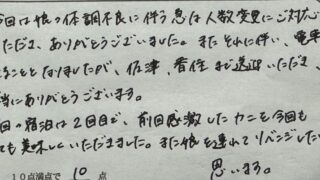 今回は娘の体調不良に伴う急な人数変更にご対応
いただき、ありがとうございました。またそれに伴い、電車
ることとなりましたが、佐津、香住まで送迎いただき、
当にありがとうございます。
回の宿泊は2回目で、前回感激したカニを今回も
ても美味しくいただきました。また娘を連れてリベンジしたい
思います。
10点満点で 10 点